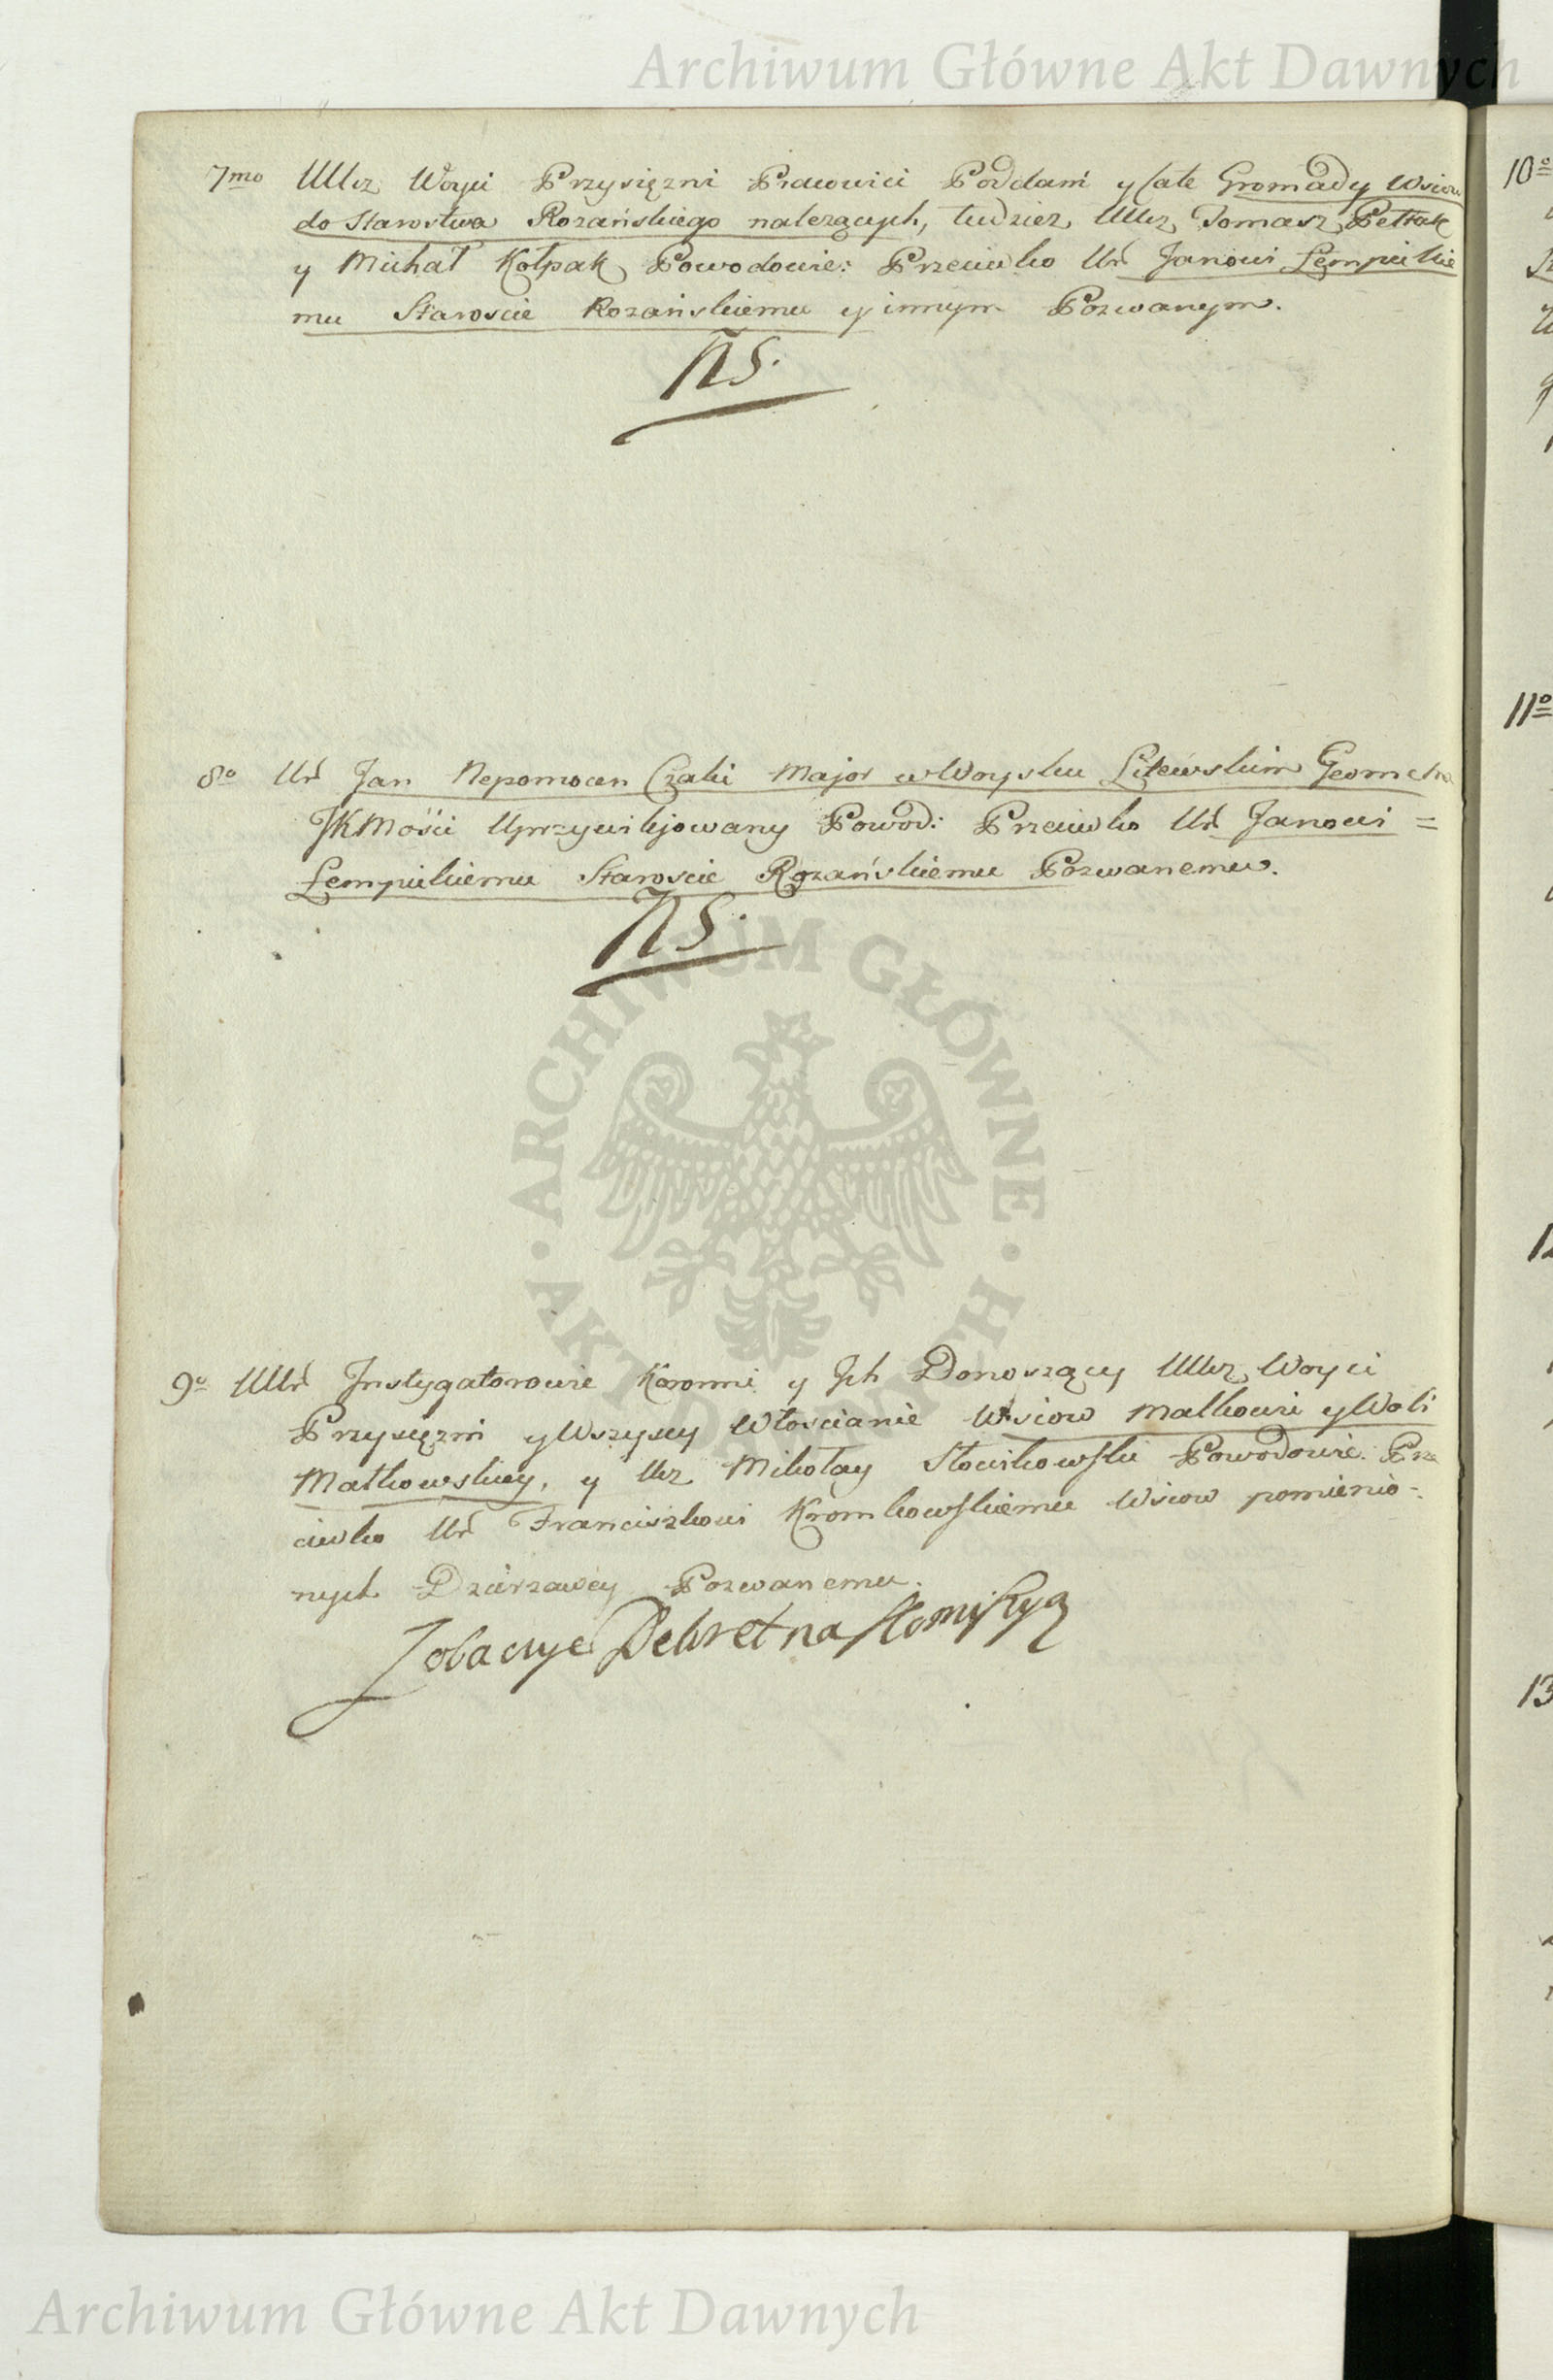 Archiwum Główne Akt Dawnych
7mo UUcz Woyci Przysięzni Pracowici Poddani y Całe Gromady Wsiow
do Starostwa Rozańskiego nalezących, tudziez UUcz Tomasz Pettak
y Michał Kołpak Powodowie: Przeciwko Ur Janowi Łempickie
mu Staroscie Rozańskiemu y innym Pozwanym.
NS.
8o Ur Jan Nepomocen Czaki Major w Woysku Litewskim Geometra
JKMości Uprzywilejowany Powod: Przeciwko Ur Janowi =
Łempickiemu Staroscie Rozańskiemu Pozwanemu.
NS.
9o UUr Instygatorowie Koronni y Ich Donoszący UUcz Woyci
Przysięzni y Wszyscy Włoscianie Wsiow Małkowi y Woli
Małkowskiey, y Ucz Mikołay Powodowie. Prze
ciwko Ur Franciszkowi Kromkowskiemu Wsiow pomienio-
nych Dzierzawcy Pozwanemu.
Zobaczyć Dekret na
10o
11o
13
ARCHIWUM GŁÓWNE · AKT DAWNYCH ·
Archiwum Główne Akt Dawnych